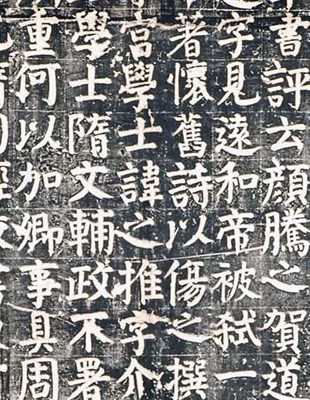 書評云顏騰之賀道
字見遠和帝被弒一
著懷舊詩以傷之撰
宮學士諱之推字介
學士隋文輔政不署
重何以加卿事具周